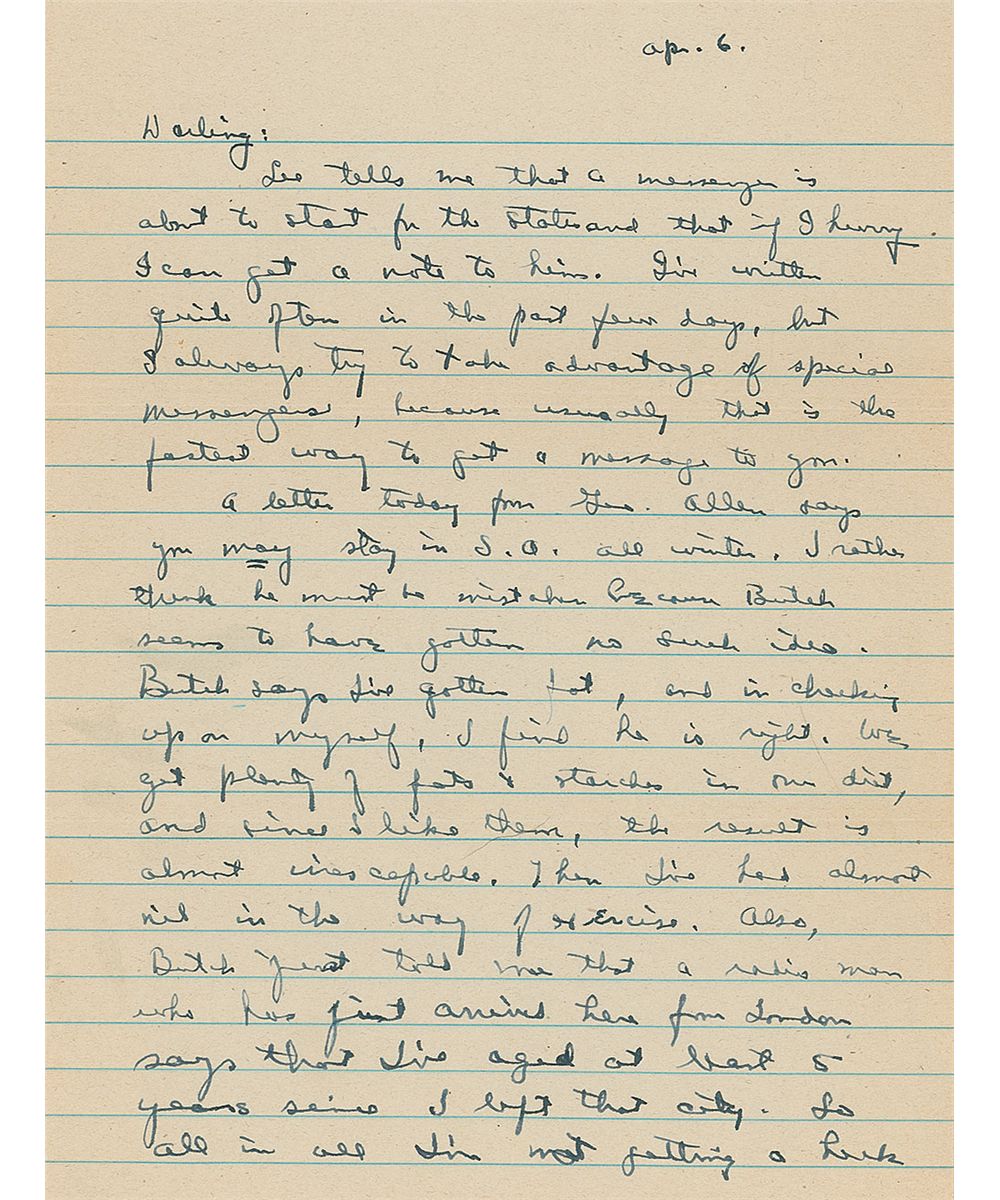 Apr. 6.
Darling:
Lee tells me that a messenger is
about to start for the States and that if I hurry
I can get a note to him. I've written
quite often in the past few days, but
I always try to take advantage of special
messengers, because usually that is the
fastest way to get a message to you.
A letter today from Geo. Allen says
you may stay in S.A. all winter. I rather
think he must be mistaken because Butch
seems to have gotten no such idea.
Butch says I've gotten fat, and in checking
up on myself, I find he is right. We
get plenty of fats & starches in our diet,
and since I like them, the result is
almost inescapable. Then I've had almost
nil in the way of exercise. Also,
Butch just told me that a radio man
who has just arrived here from London
says that I've aged at least 5
years since I left that city. So
all in all I'm not getting a heck